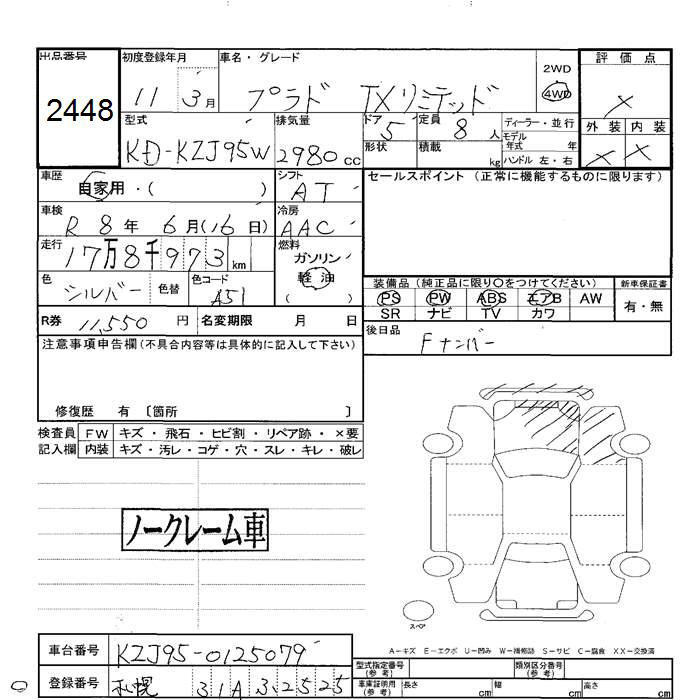 出品番号 2448
初度登録年月 11 3月
車名・グレード プラド TXリミテッド
2WD 4WD
評価点 X
外装 内装
X X
型式 KD-KZJ95W
排気量 2980 cc
ドア 5 定員 8人
形状 積載 kg
ディーラー・並行
モデル年式 年
ハンドル 左・右
車歴 自家用・( )
シフト AT
セールスポイント (正常に機能するものに限ります)
車検 R 8年 6月(16日)
冷房 AAC
走行 17万8千973km
燃料 ガソリン 軽油 ( )
色 シルバー 色替 色コード A51
装備品 (純正品に限り○をつけてください) 新車保証書
PS PW ABS エアB AW 有・無
SR ナビ TV カワ
R券 11,550円 名変期限 月 日
後日品 Fナンバー
注意事項申告欄 (不具合内容等は具体的に記入して下さい)
修復歴 有 〔箇所 〕
検査員 FW キズ・飛石・ヒビ割・リペア跡・×要
記入欄 内装 キズ・汚レ・コゲ・穴・スレ・キレ・破レ
ノークレーム車
スペア
A－キズ E－エクボ U－凹み W－補修跡 S－サビ C－腐食 XX－交換済
車台番号 KZJ95-0125079
登録番号 札幌 31A 32525
型式指定番号 (参考) 類別区分番号 (参考)
車庫証明用 (参考) 長さ cm 幅 cm 高さ cm